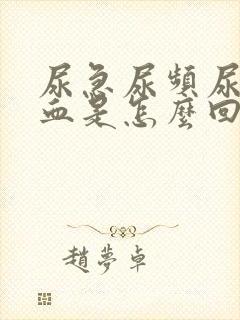 尿急尿頻尿
血是怎麼回
趙夢卓